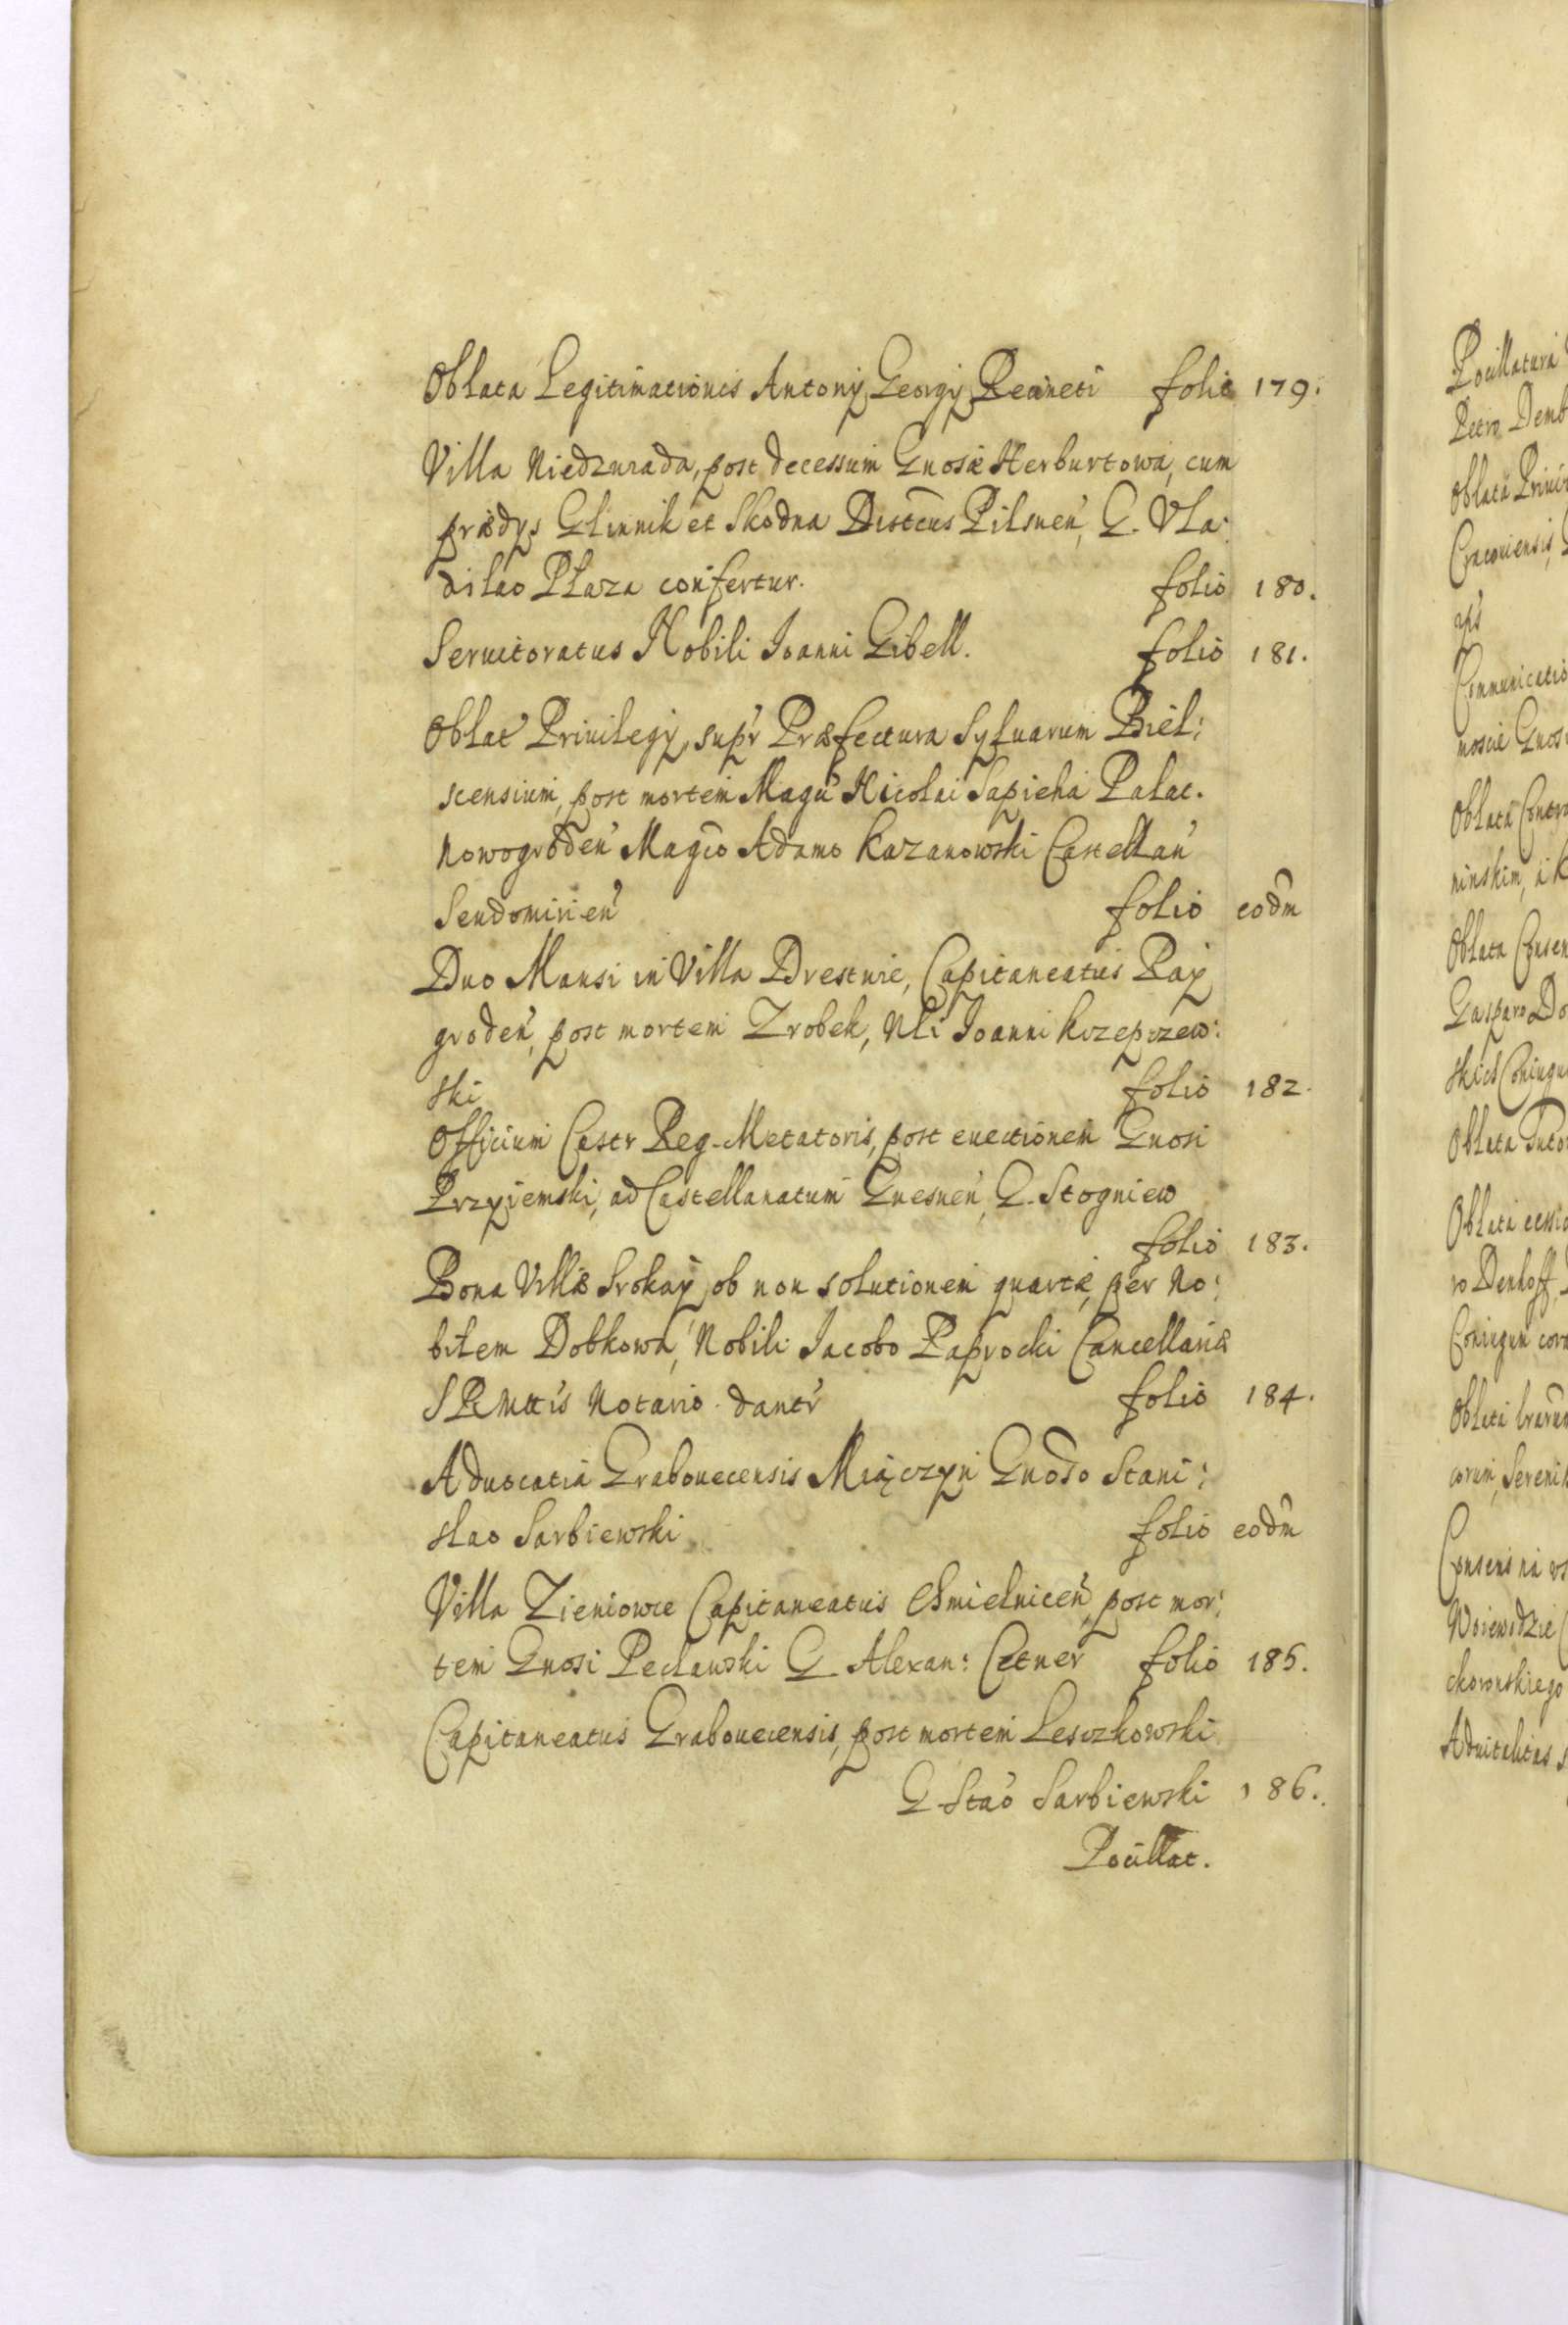 Oblata Legitimationis Antonij Georgij Reaineti folio 179.
Villa Niedzwiada, post decessum Gnosæ Herburtowa, cum
prædys Glinnik et Skodna Distcus Pilsnen, G. Vla:
dislao Płaza confertur. folio 180.
Seruitoratus Nobili Joanni Gibell. folio 181.
Oblat Priuilegij, supr Præfectura Syluarum Biel:
scensium, post mortem Magci Nicolai Sapieha Palat.
Nowogroden Magco Adamo Kazanowski Castellan
Sendomirien folio eodm
Duo Mansi in Villa Drestwie, Capitaneatus Ray
groden, post mortem Zrobek, Nli Joanni Krzepczew:
ski folio 182.
Officium Castr Reg. Metatoris, post euectionem Gnosi
Przyiemski, ad Castellanatum Gnesnen, G. Stogniew
folio 183.
Bona Villæ Srokay, ob non solutionem quartæ, per No:
bilem Dobkowa, Nobili Jacobo Paprocki Cancellariæ
S R Mttis Notario dantr folio 184.
Aduocatia Grabouecensis Miączyn Gnoso Stani:
slao Sarbiewski folio eodm
Villa Zieniowce Capitaneatus Chmielnicen, post mor:
tem Gnosi Pecławski G. Alexan: Cetner folio 185.
Capitaneatus Grabouecensis, post mortem Lesczkowski
G. Stao Sarbiewski 186.
Pocillat.
Pocillatura
Petro Demb
Oblata Priui
Cracouiensis,
Communicatio
Oblata Contra
Oblata Consen
Gasparo Do
Oblata
Oblata cessio
ro Denhoff,
Coniugum cora
Oblata
corum, Sereni
Consens na
Woiewodzie
ckoronskiego
Aduitalitas